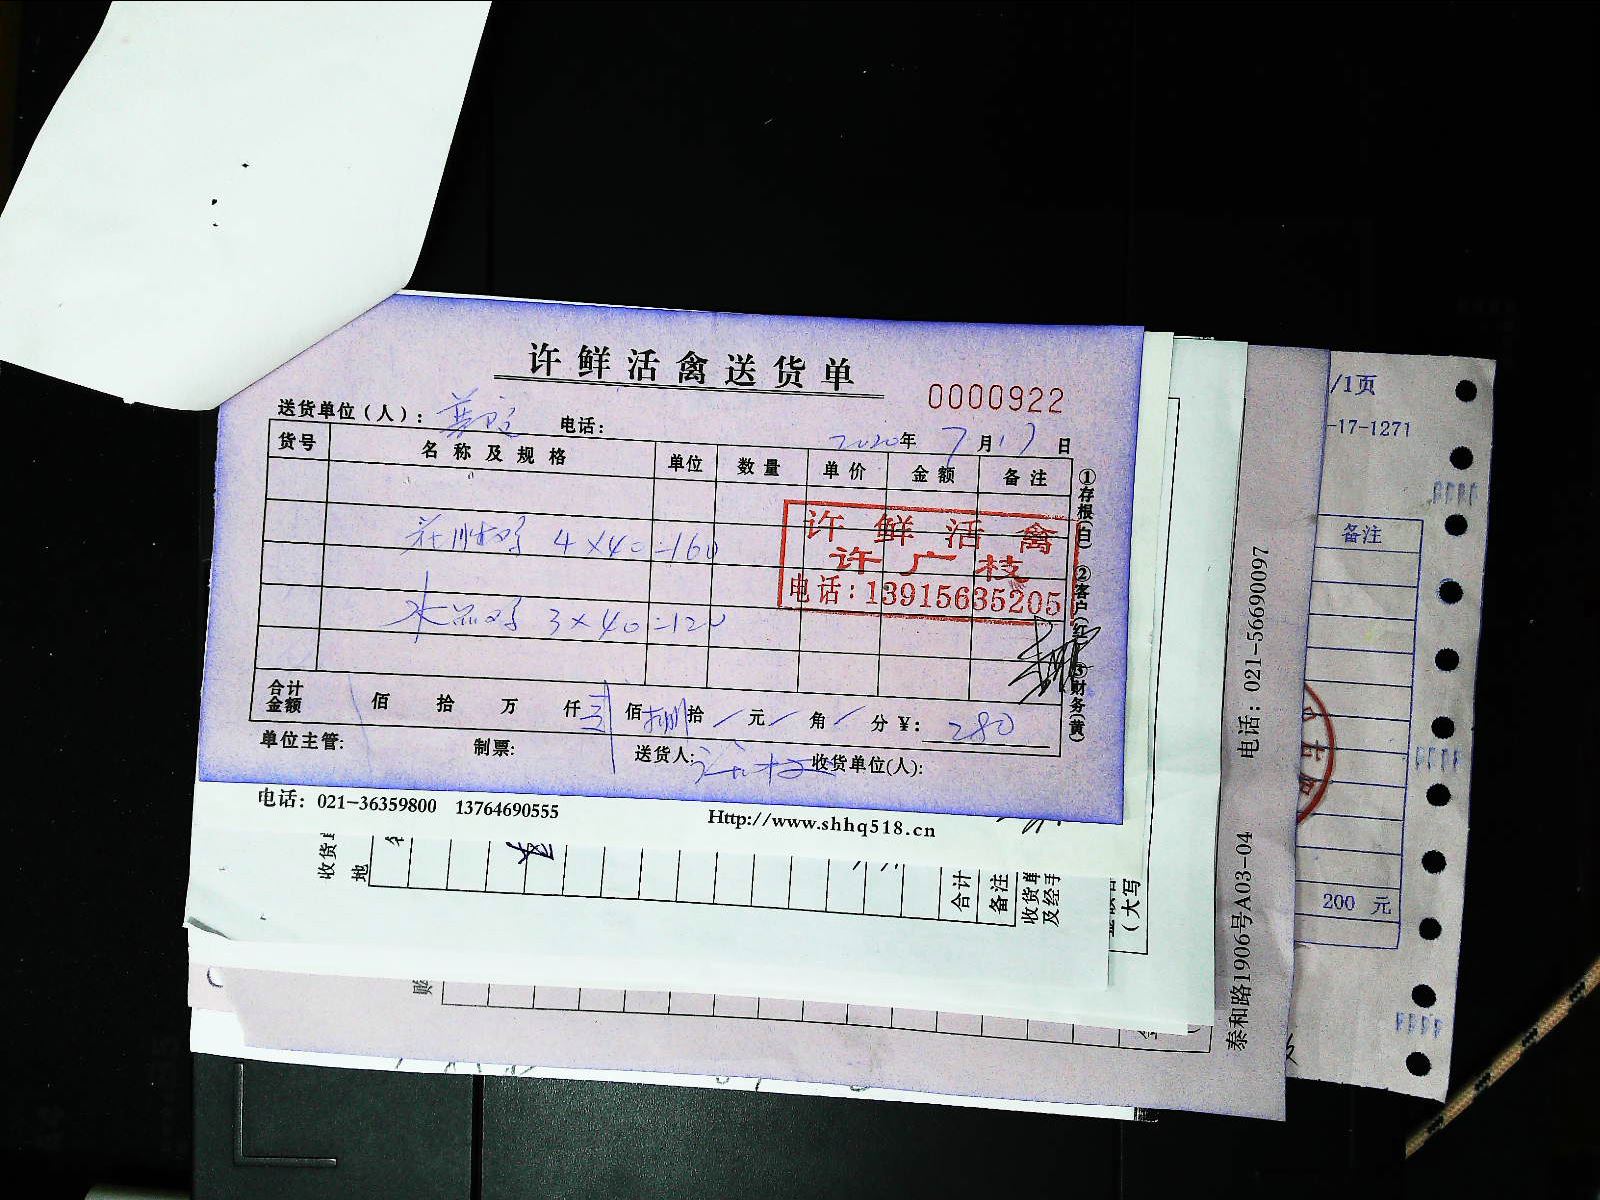 许鲜活禽送货单
0000922
送货单位（人）： 电话：
2020年 7月17日
货号 名称及规格 单位 数量 单价 金额 备注
4×40=160
3×40=120
许鲜活禽
许广枝
电话：13915635205
①存根(白) ②客户(红) ③财务(黄)
合计金额 佰 拾 万 仟 佰 捌拾 元 角 分 ¥： 280
单位主管: 制票: 送货人: 收货单位(人):
电话：021-36359800 13764690555
Http://www.shhq518.cn
合计
备注
收货单
及经手
(大写
泰和路1906号A03-04 电话：021-56690097
/1页
-17-1271
备注
200 元